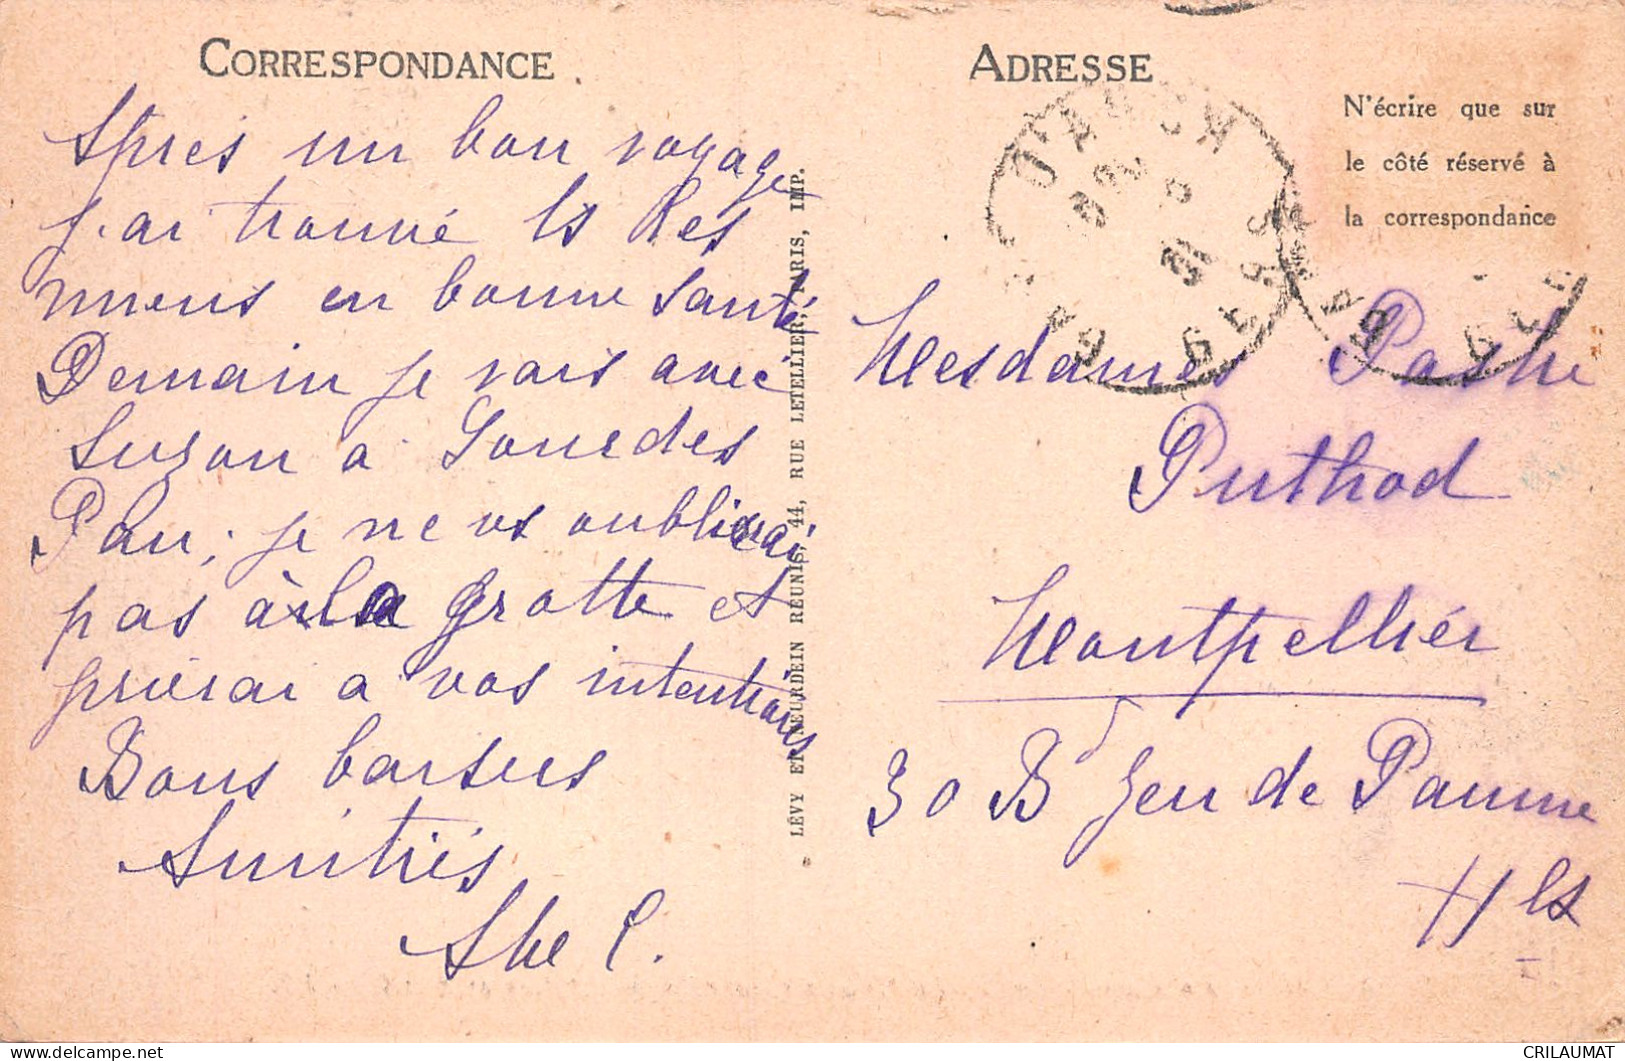 CORRESPONDANCE
Après un bon voyage
j'ai trouvé ls
miens en bonne santé
Demain je vais avec
Suzon à Lourdes
Pau; je ne vs oublierai
pas à la grotte et
prierai à vos intentions
Bons baisers
Amitiés
C.
LÉVY ET NEURDEIN RÉUNIS, 44, RUE LETELLIER, PARIS, IMP.
ADRESSE
N'écrire que sur
le côté réservé à
la correspondance
D'AUCH
31
GERS
Mesdames
Puthod
Montpellier
30 Bd Jeu de Paume
Hlt
CRILAUMAT